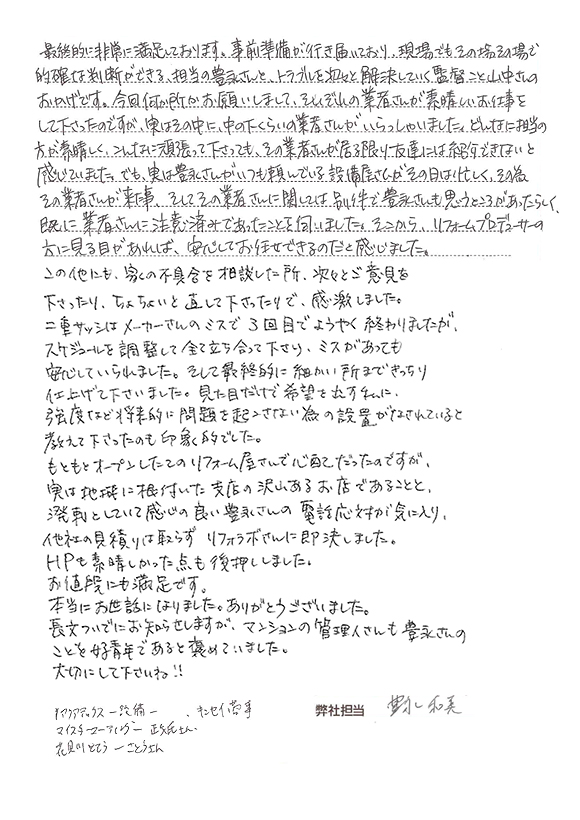 最終的に非常に満足しております。事前準備が行き届いており、現場でもその場その場で
的確な判断ができる、担当の豊永さんと、トラブルを次々と解決していく監督こと山中さんの
おかげです。今回何か所かお願いしまして、それぞれの業者さんが素晴しいお仕事を
して下さったのですが、実はその中に、中の下くらいの業者さんがいらっしゃいました。どんなに担当の
方が素晴しく、こんなに頑張って下さっても、その業者さんが居る限り友達には紹介できないと
感じていました。でも、実は豊永さんがいつも頼んでいる設備屋さんがその日は忙しく、その為
その業者さんが来た事、そしてその業者さんに関しては別件で豊永さんも思うところがあったらしく、
既に業者さんに注意済みであったことを伺いました。そこから、リフォームプロデューサーの
方に見る目があれば、安心してお任せできるのだと感じました。
この他にも、家の不具合を相談した所、次々とご意見を
下さったり、ちょちょいと直して下さったりで、感激しました。
二重サッシはメーカーさんのミスで3回目でようやく終わりましたが、
スケジュールを調整して全て立ち会って下さり、ミスがあっても
安心していられました。そして最終的に細かい所まできっちり
仕上げて下さいました。見た目だけで希望を出す私に、
強度など将来的に問題を起こさない為の設置がなされていると
教えて下さったのも印象的でした。
もともとオープンしたてのリフォーム屋さんで心配だったのですが、
実は地域に根付いた支店の沢山あるお店であることと、
溌剌としていて感じの良い豊永さんの電話応対が気に入り、
他社の見積りは取らずリフォラボさんに即決しました。
HPも素晴しかった点も後押ししました。
お値段にも満足です。
本当にお世話になりました。ありがとうございました。
長文ついでにお知らせしますが、マンションの管理人さんも豊永さんの
ことを好青年であると褒めていました。
大切にして下さいね!!
弊社担当 豊永 和美